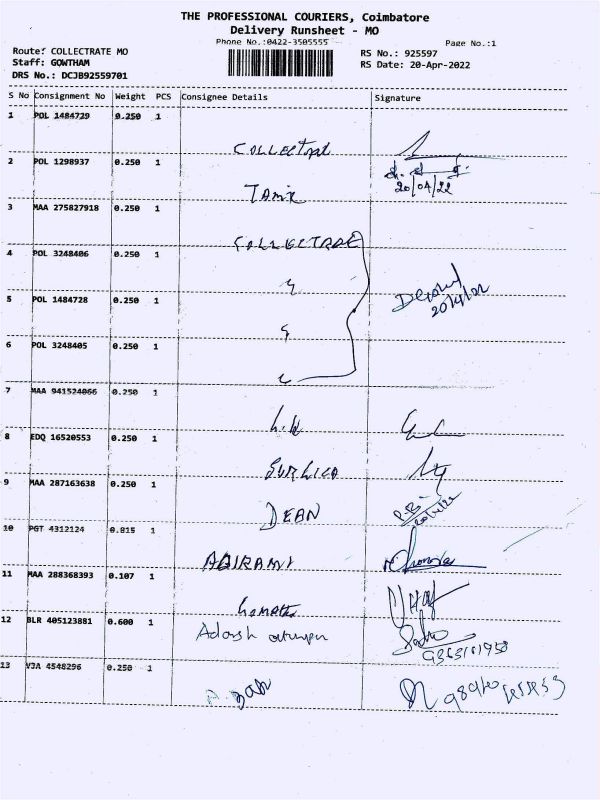 THE PROFESSIONAL COURIERS, Coimbatore
Delivery Runsheet - MO
Phone No.:0422-3505555
Page No.:1
Route: COLLECTRATE MO
RS No.: 925597
Staff: GOWTHAM
RS Date: 20-Apr-2022
DRS No.: DCJB92559701
S No Consignment No Weight PCS Consignee Details Signature
1 POL 1484729 0.250 1
COLLECTORATE
2 POL 1298937 0.250 1
20/04/22
TAMIL
3 MAA 275827918 0.250 1
COLLECTRATE
4 POL 3248406 0.250 1
5 POL 1484728 0.250 1
20/4/22
6 POL 3248405 0.250 1
7 MAA 941524066 0.250 1
8 EDQ 16520553 0.250 1
9 MAA 287163638 0.250 1
DEAN
20/4/22
10 PGT 4312124 0.815 1
ABIRAMI
11 MAA 288368393 0.107 1
12 BLR 405123881 0.600 1
Adarsh
13 VJA 4548296 0.250 1